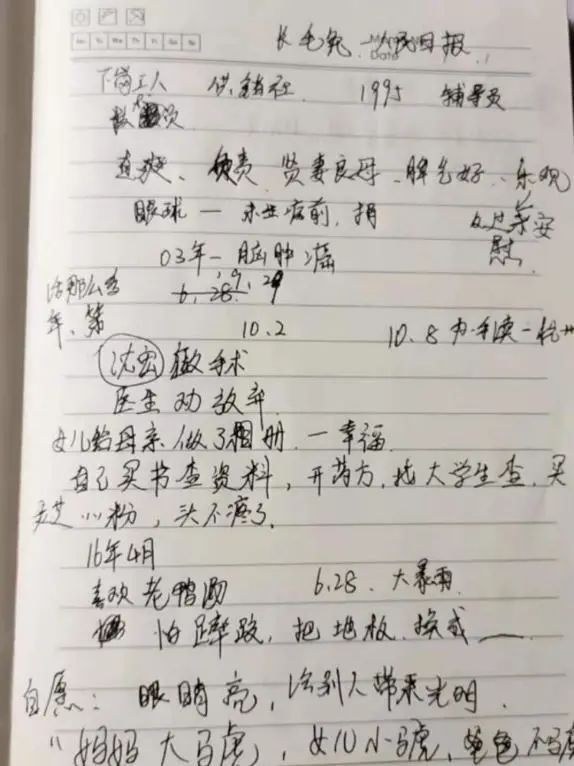 Mo Tu We Th Fr Sa Su
长毛兔 一人民日报
Date
下岗工人 供销社 1995 辅导员
直爽、负责 贤妻良母 脾气好、乐观
眼球 — 未生病前、捐
反过来安慰
03年—脑肿瘤
6.28.
活那么多年、第
10.2 10.8 办手续—杭州
沈宏 做手术
医生劝放弃
女儿给母亲做了相册.—幸福.
自己买书查资料，开药方，找大学生查，买
灵芝 粉，头不疼了.
16年4月
喜欢老鸭 6.28、大暴雨
怕 ，把地板换成
自愿： 眼睛亮，给别人带来光明.
“妈妈大马虎，女儿小马虎，